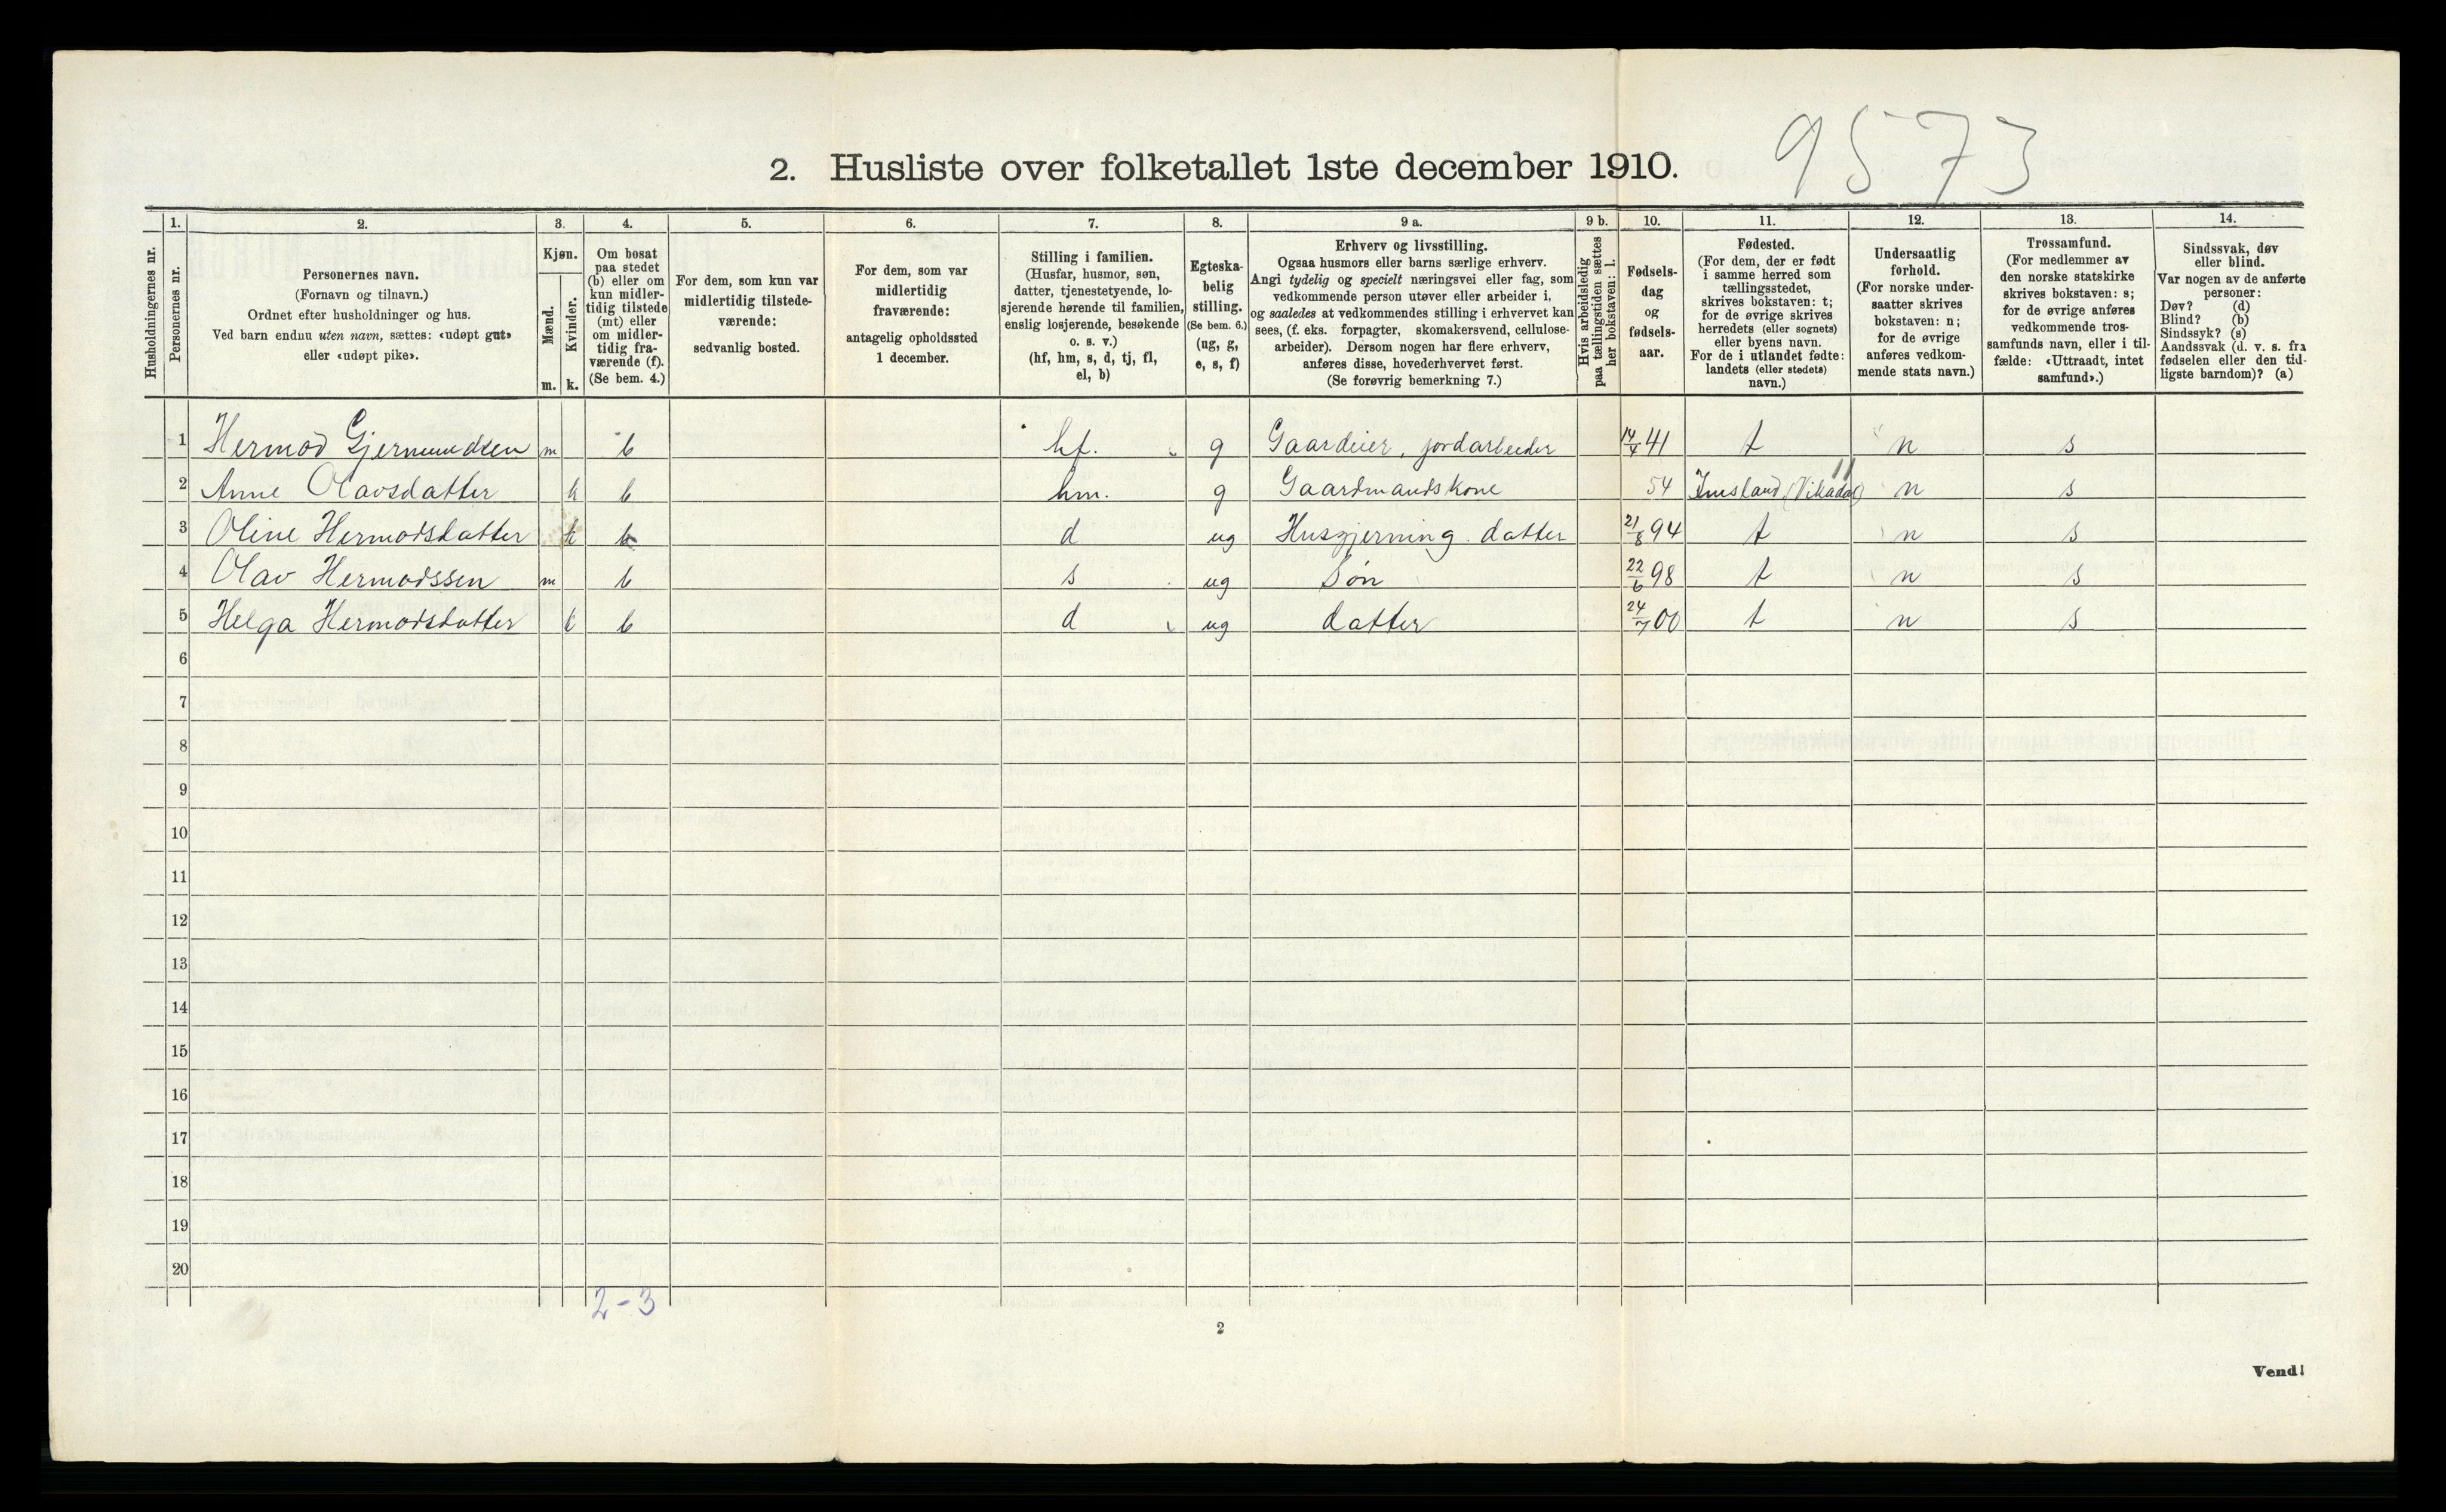 9573
2. Husliste over folketallet 1ste december 1910.
Husholdningernes nr.
1.
Personernes nr.
2.
Personernes navn.
(Fornavn og tilnavn.)
Ordnet efter husholdninger og hus.
Ved barn endnu uten navn, sættes: «udøpt gut»
eller «udøpt pike».
3.
Kjøn.
Mænd.
Kvinder.
m. k.
4.
Om bosat
paa stedet
(b) eller om
kun midler-
tidig tilstede
(mt) eller
om midler-
tidig fra-
værende (f).
(Se bem. 4.)
5.
For dem, som kun var
midlertidig tilstede-
værende:
sedvanlig bosted.
6.
For dem, som var
midlertidig
fraværende:
antagelig opholdssted
1 december.
7.
Stilling i familien.
(Husfar, husmor, søn,
datter, tjenestetyende, lo-
sjerende hørende til familien,
enslig losjerende, besøkende
o. s. v.)
(hf, hm, s, d, tj, fl,
el, b)
8.
Egteska-
belig
stilling.
(Se bem. 6.)
(ug, g,
e, s, f)
9 a.
Erhverv og livsstilling.
Ogsaa husmors eller barns særlige erhverv.
Angi tydelig og specielt næringsvei eller fag, som
vedkommende person utøver eller arbeider i,
og saaledes at vedkommendes stilling i erhvervet kan
sees, (f. eks. forpagter, skomakersvend, cellulose-
arbeider). Dersom nogen har flere erhverv,
anføres disse, hovederhvervet først.
(Se forøvrig bemerkning 7.)
9 b.
Hvis arbeidsledig
paa tællingstiden sættes
her bokstaven: l.
10.
Fødsels-
dag
og
fødsels-
aar.
11.
Fødested.
(For dem, der er født
i samme herred som
tællingsstedet,
skrives bokstaven: t;
for de øvrige skrives
herredets (eller sognets)
eller byens navn.
For de i utlandet fødte:
landets (eller stedets)
navn.)
12.
Undersaatlig
forhold.
(For norske under-
saatter skrives
bokstaven: n;
for de øvrige
anføres vedkom-
mende stats navn.)
13.
Trossamfund.
(For medlemmer av
den norske statskirke
skrives bokstaven: s;
for de øvrige anføres
vedkommende tros-
samfunds navn, eller i til-
fælde: «Uttraadt, intet
samfund».)
14.
Sindssvak, døv
eller blind.
Var nogen av de anførte
personer:
Døv? (d)
Blind? (b)
Sindssyk? (s)
Aandssvak (d. v. s. fra
fødselen eller den tid-
ligste barndom)? (a)
1 Hermod Gjermundsen m b hf. g Gaardeier, jordarbeider 14/4 41 t n s
2 Anne Olavsdatter k b hm. g Gaardmandskone 54 Imsland (Vikedal) n s
3 Oline Hermodsdatter k b d ug Husgjerning datter 21/8 94 t n s
4 Olav Hermodssen m b s ug Søn 22/6 98 t n s
5 Helga Hermodsdatter k b d ug datter 24/7 00 t n s
6
7
8
9
10
11
12
13
14
15
16
17
18
19
20
2-3
2
Vend!